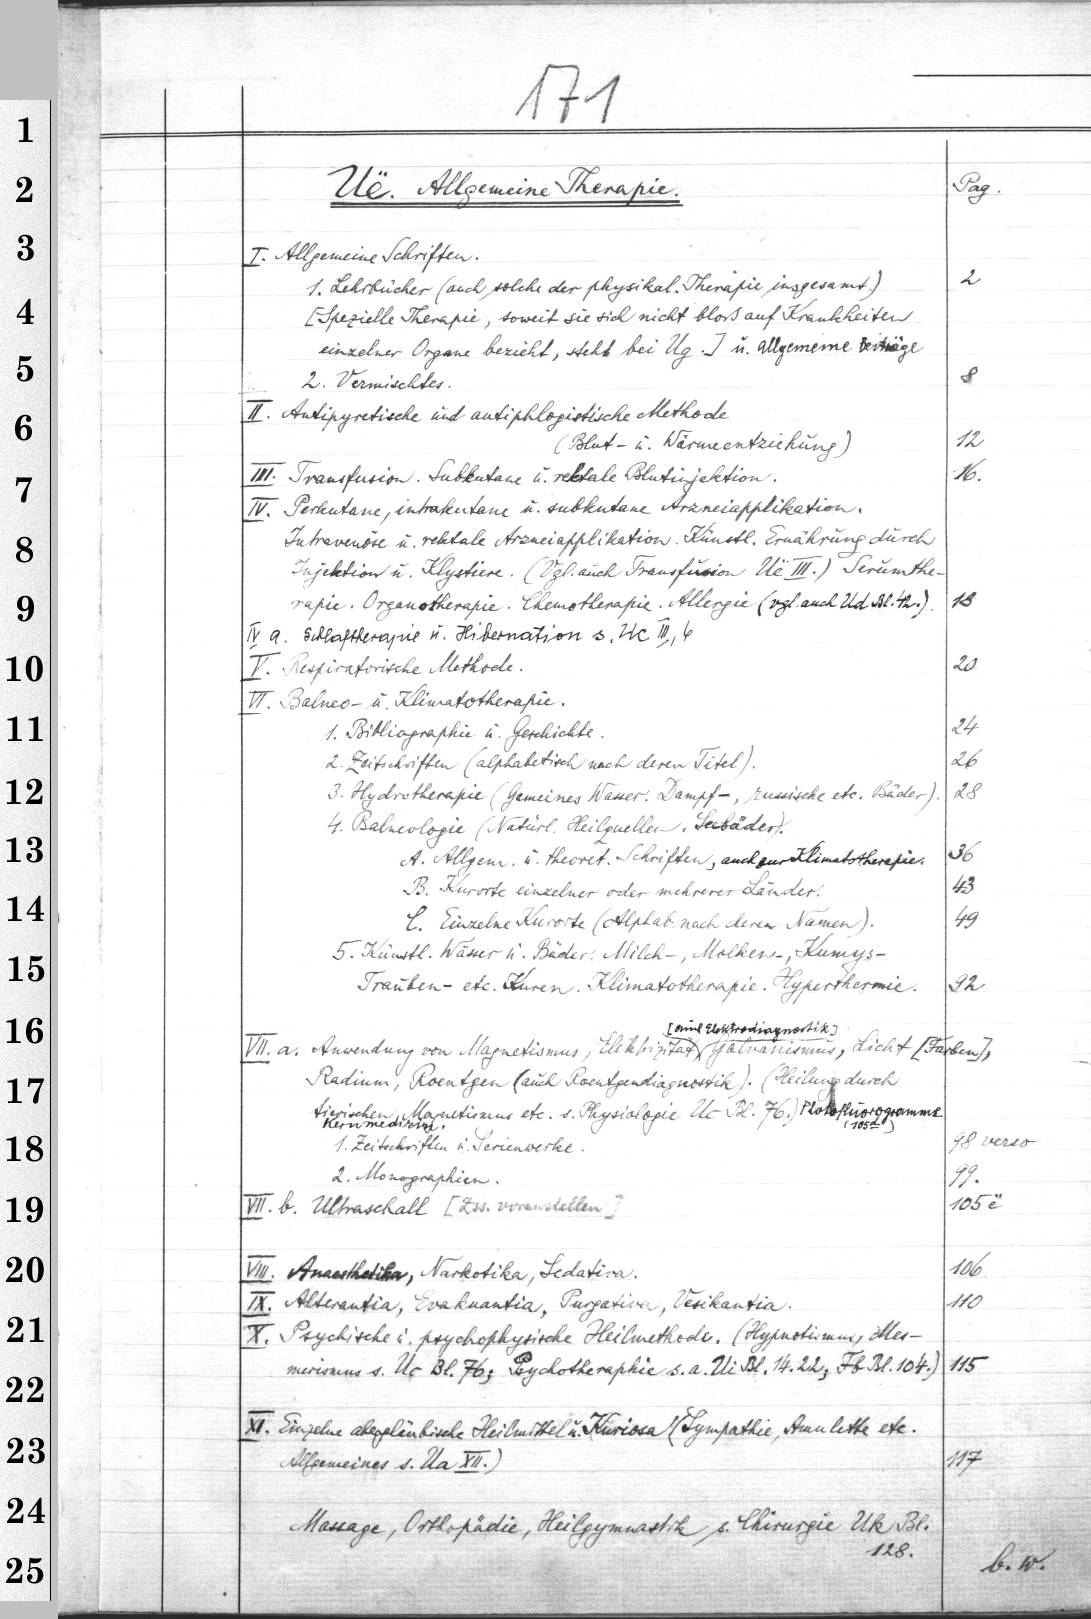 171
Uë. Allgemeine Therapie. Pag.
I. Allgemeine Schriften.
1. Lehrbücher (auch solche der physikal. Therapie insgesamt.) 2
[Spezielle Therapie, soweit sie sich nicht bloß auf Krankheiten
einzelner Organe bezieht, steht bei Ug.] u. allgemeine Beiträge
2. Vermischtes. 8
II. Antipyretische und antiphlogistische Methode
(Blut- u. Wärmeentziehung) 12
III. Transfusion. Subkutane u. rektale Blutinjektion. 16.
IV. Perkutane, intrakutane u. subkutane Arzneiapplikation.
Intravenöse u. rektale Arzneiapplikation. Künstl. Ernährung durch
Injektion u. Klystiere. (Vgl. auch Transfusion Uë III.) Serumthe-
rapie. Organotherapie. Chemotherapie. Allergie (vgl. auch Ud Bl. 42.). 18
IV a. Schlaftherapie u. Hibernation s. Uc III, 6
V. Respiratorische Methode. 20
VI. Balneo- u. Klimatotherapie.
1. Bibliographie u. Geschichte. 24
2. Zeitschriften (alphabetisch nach deren Titel). 26
3. Hydrotherapie (Gemeines Wasser. Dampf-, russische etc. Bäder). 28
4. Balneologie (Natürl. Heilquellen. Seebäder).
A. Allgem. u. theoret. Schriften, auch zur Klimatotherapie. 36
B. Kurorte einzelner oder mehrerer Länder. 43
C. Einzelne Kurorte (Alphab. nach deren Namen). 49
5. Künstl. Wässer u. Bäder. Milch-, Molken-, Kumys-
Trauben- etc. Kuren. Klimatotherapie. Hyperthermie. 92
[auch Elektrodiagnostik]
VII. a. Anwendung von Magnetismus, Elektrizität, Galvanismus, Licht [Farben],
Radium, Roentgen (auch Roentgendiagnostik). (Heilung durch
tierischen Magnetismus etc. s. Physiologie Uc Bl. 76.) Photofluorogramme
Kernmedizin.
1. Zeitschriften u. Serienwerke. 98 verso
2. Monographien. 99.
VII. b. Ultraschall [Zss. voranstellen] 105 ë
VIII. Anaesthetika, Narkotika, Sedativa. 106
IX. Alterantia, Evakuantia, Purgativa, Vesikantia. 110
X. Psychische u. psychophysische Heilmethode. (Hypnotismus, Mes-
merismus s. Uc Bl. 76; Psychotherapie s. a. Ui Bl. 14. 22; Fb Bl. 104.) 115
XI. Einzelne abergläubische Heilmittel u. Kuriosa! (Sympathie, Amulette etc.
Allgemeines s. Ua XII.) 117
Massage, Orthopädie, Heilgymnastik s. Chirurgie Uk Bl.
128.
b. w.